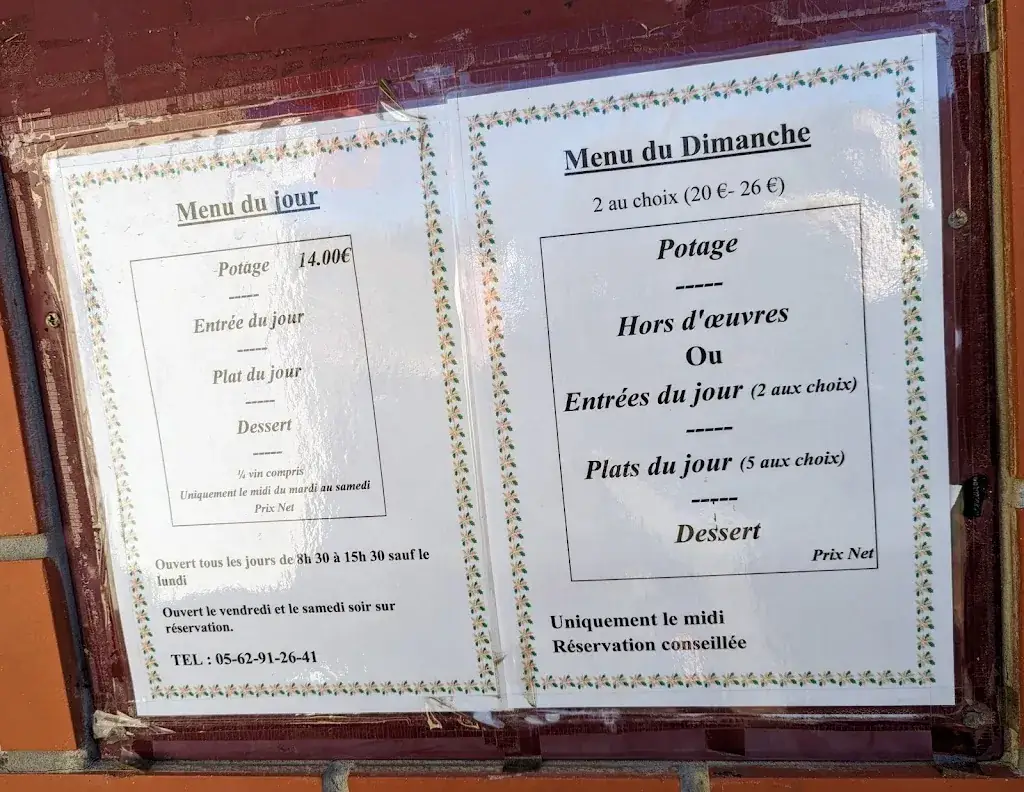 Menu du jour
Potage 14.00€
-----
Entrée du jour
-----
Plat du jour
-----
Dessert
-----
¼ vin compris
Uniquement le midi du mardi au samedi
Prix Net
Ouvert tous les jours de 8h 30 à 15h 30 sauf le
lundi
Ouvert le vendredi et le samedi soir sur
réservation.
TEL : 05-62-91-26-41
Menu du Dimanche
2 au choix (20 €- 26 €)
Potage
-----
Hors d'œuvres
Ou
Entrées du jour (2 aux choix)
-----
Plats du jour (5 aux choix)
-----
Dessert
Prix Net
Uniquement le midi
Réservation conseillée